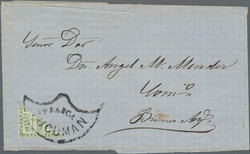 Señor Dor
Dn Angel M. Mendez
Como
Buenos Ays
FRANCA
TUCUMAN